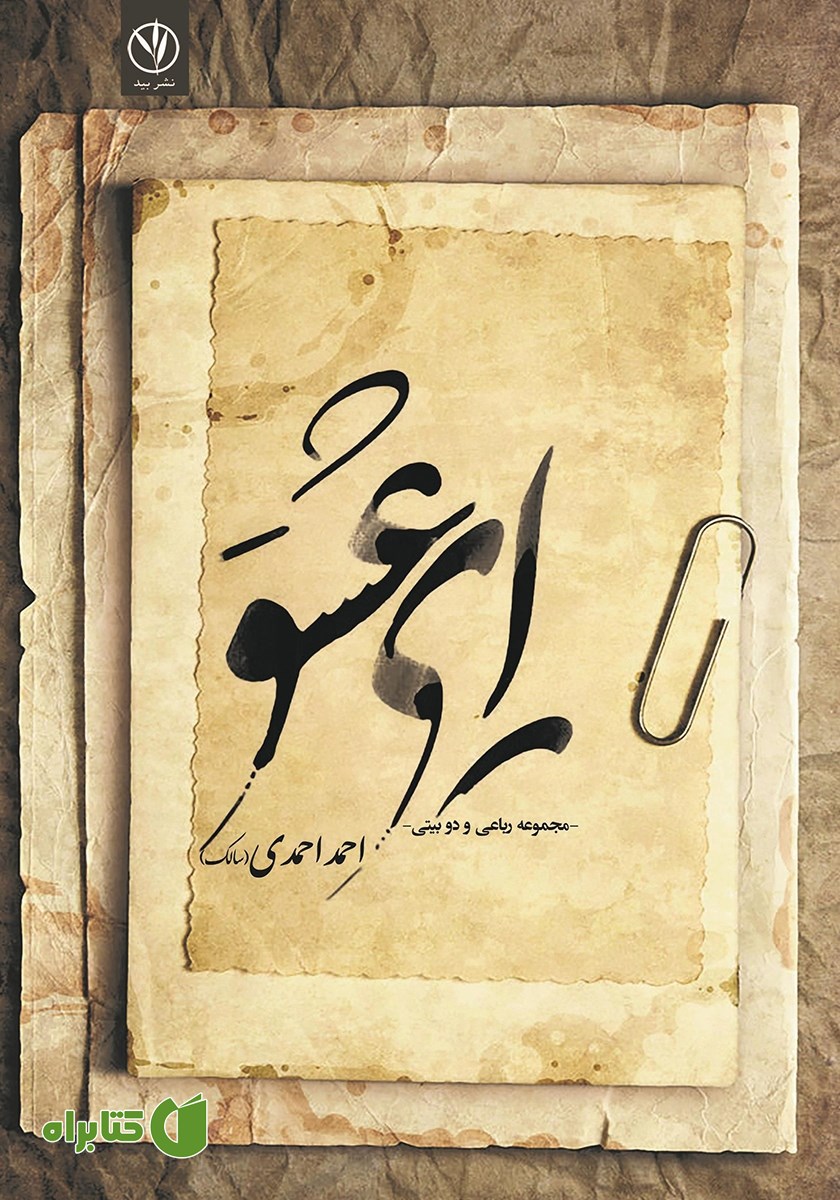 نشر بید
راوی عشق
-مجموعه رباعی و دو بیتی-
احمد احمدی (سالک)
کتابراه